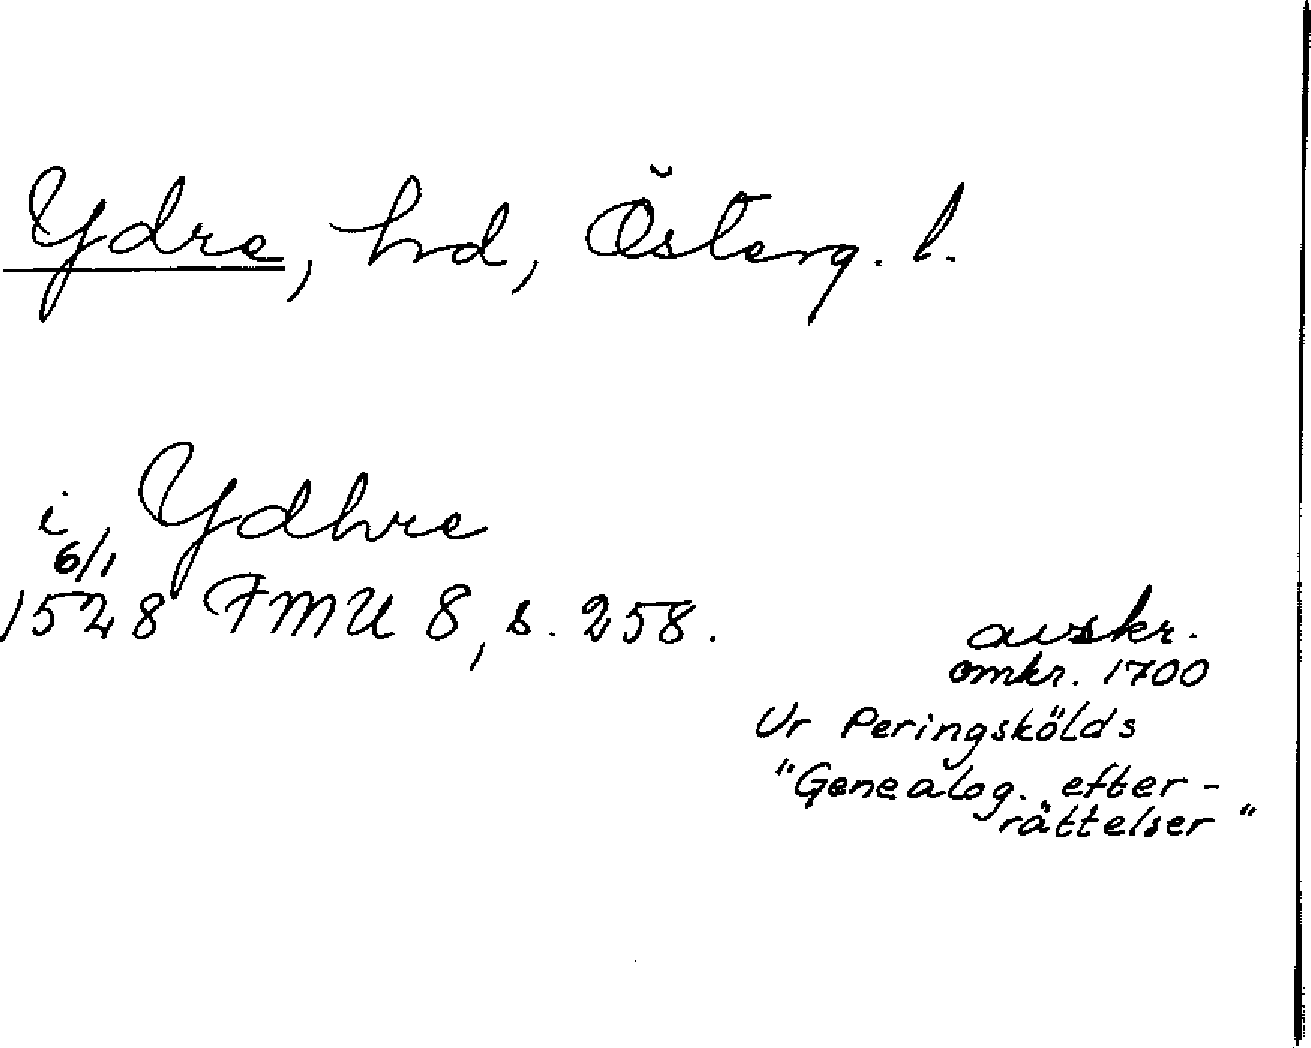 Ydre, hd, Österg. l.
i Ydhre
6/1
1528 FMU 8, s. 258.
avskr.
omkr. 1700
Ur Peringskölds
"Genealog. efter-
rättelser"